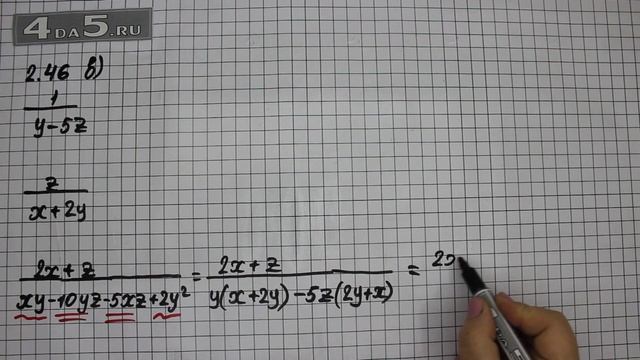 4DA5.RU
2.46 в)
1
y-5z
z
x+2y
2x+z / xy-10yz-5xz+2y² = 2x+z / y(x+2y)-5z(2y+x) = 2x